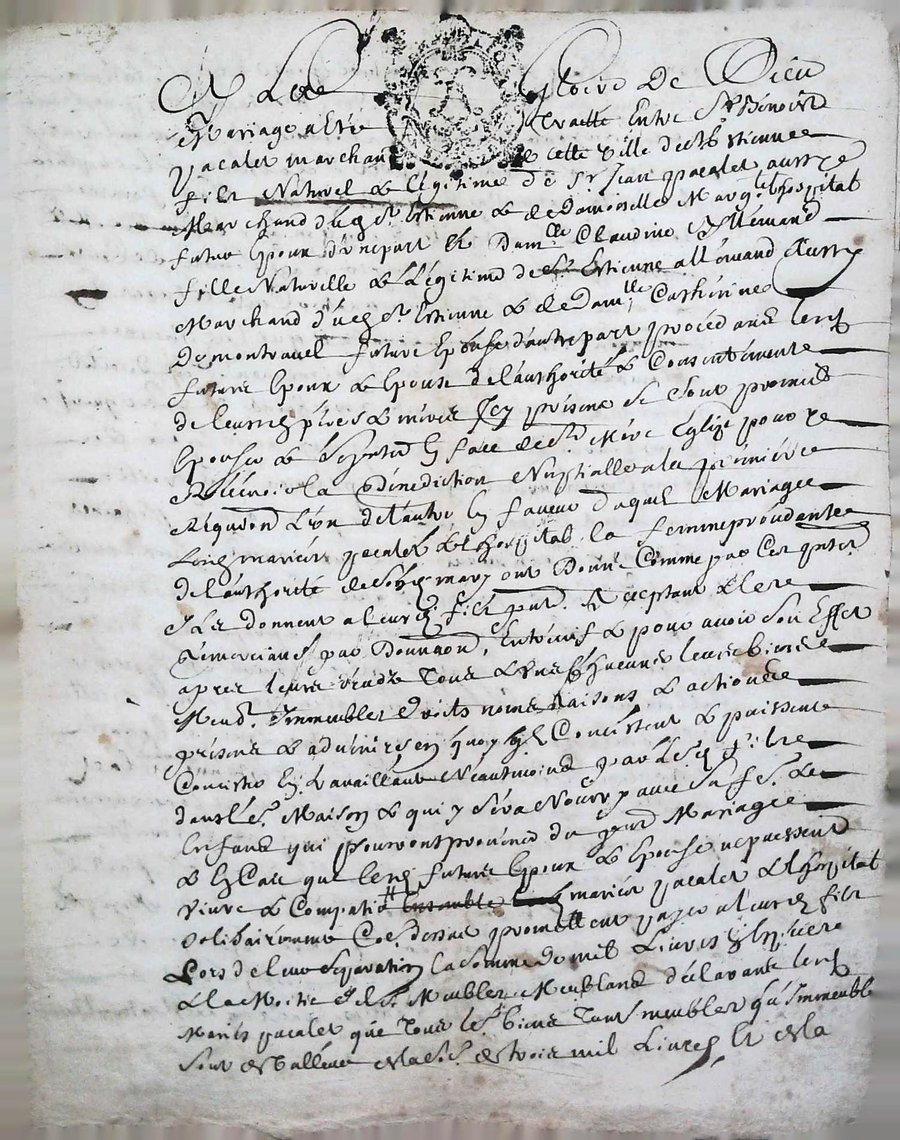 A La Gloire De Dieu
Mariage a Esté Traitté Entre Sr Benoist
pacalet marchand de cette Ville de St Estienne
filz Naturel & légitime de Sr Jean pacalet aussy
Marchand dud St Estienne & de Damoiselle Margte lhospital
futur Epoux d'une part Et Damlle Claudine Allemand
fille Naturelle & Légitime de Sr Estienne allemand Aussy
Marchand dud St Estienne & de Damlle Catherine
De montravel future Epouse d'autre part procedants lesd
futurs Epoux & Epouse de l'authorité & Consentement
de leursd pères & mères Icy présens Se Sont promis
Epouser & En face de Ste Mère Eglize pour y
Recevoir la Bénédiction Nuptialle a la première
Réquon L'un de l'autre En faveur duquel Mariage
Lesd mariés pacalet & lhospital la femme procédante
de l'authorité de sond mary ont Donné Comme par Ces
Ils donnent aleurd filz Acceptant &
Remerciant par Donnaon Entrevifs & pour avoir Son Effet
après leurs Tous & Uns Chacuns leurs biens
Meub. Immeubles droits noms Raisons & actions
présens & advenirs En quoy quils Concistent & puissent
Concister En travaillant Néautmoins par Led
dans les. Maison & qui y Séra Nourry avec sa fe. &
Enfans qui pourront provenir du Mariage
& En Cas que lesd futurs Epoux & Epouse nepuissent
vivre & Compatir mariés pacalet & lhospital
Solidairement promettent payer aleurd filz
Lors de leur Séparation la Somme de mil Livres
& la Moitié des Meubles Meublans déclarants lesd
Mariés pacalet que Tous les. biens Tant meubles qu'Immeubles
Sont de Valleur de trois mil Livres Et de la